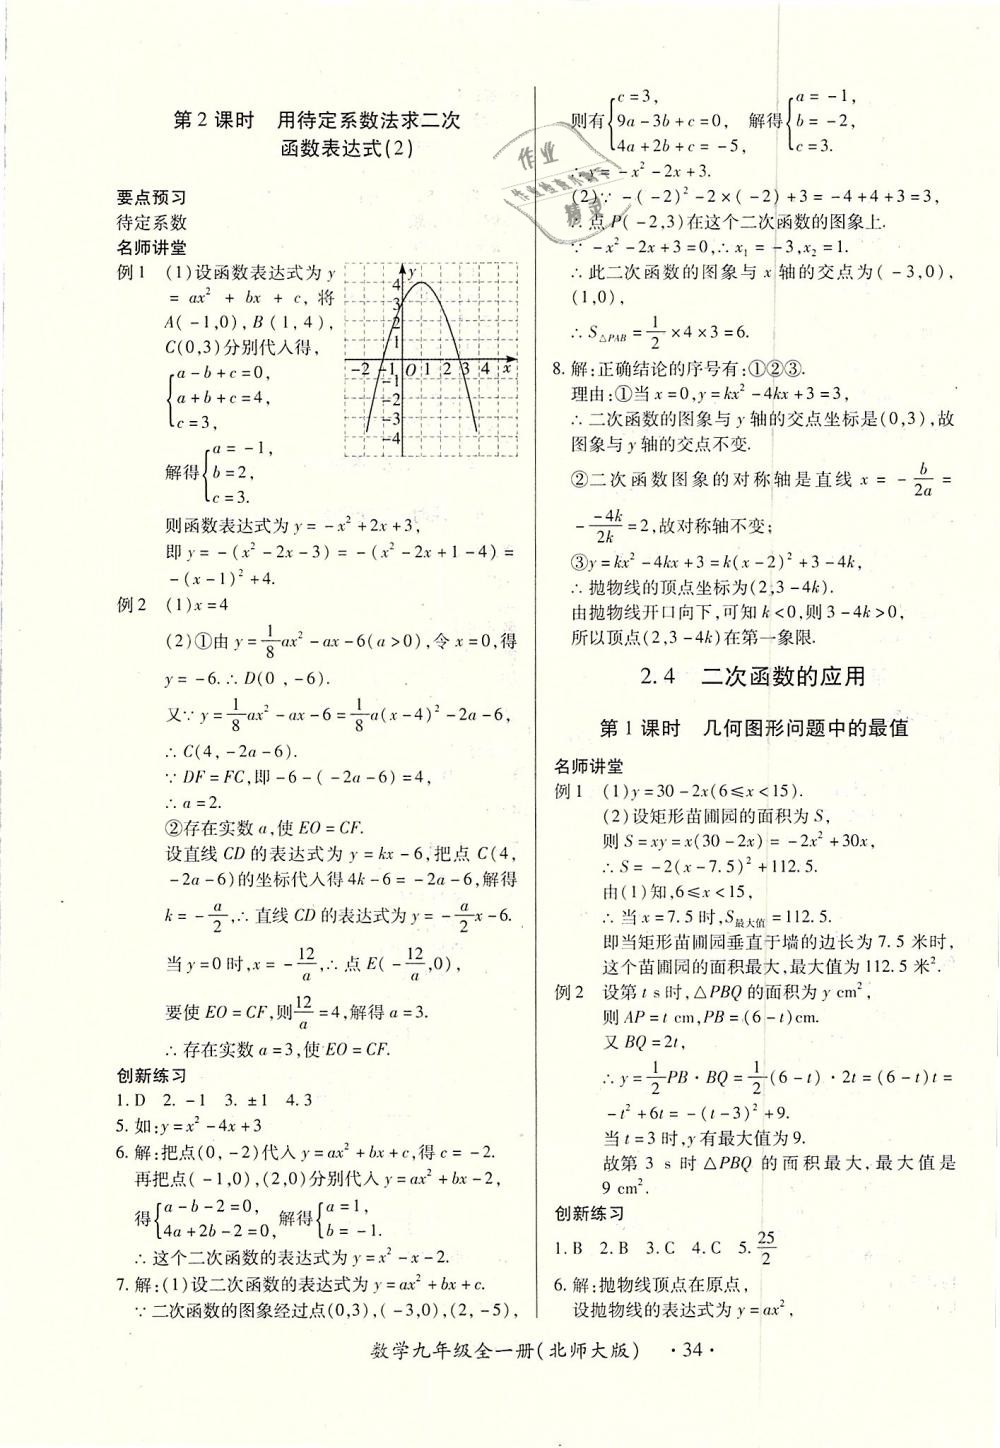 第2课时　用待定系数法求二次
函数表达式(2)
要点预习
待定系数
名师讲堂
例1　(1)设函数表达式为 y
= ax² + bx + c, 将
A(-1,0), B(1,4),
C(0,3)分别代入得,
{a-b+c=0,
a+b+c=4,
c=3,
解得{a=-1,
b=2,
c=3.
y
4
3
2
1
-2 -1 O 1 2 3 4 x
-1
-2
-3
-4
则函数表达式为 y=-x²+2x+3,
即 y=-(x²-2x-3)=-(x²-2x+1-4)=
-(x-1)²+4.
例2　(1)x=4
(2)①由 y=1/8ax²-ax-6(a>0),令 x=0,得
y=-6.∴D(0,-6).
又∵y=1/8ax²-ax-6=1/8a(x-4)²-2a-6,
∴C(4,-2a-6).
∵DF=FC,即-6-(-2a-6)=4,
∴a=2.
②存在实数 a,使 EO=CF.
设直线 CD 的表达式为 y=kx-6,把点 C(4,
-2a-6)的坐标代入得4k-6=-2a-6,解得
k=-a/2,∴直线 CD 的表达式为 y=-a/2x-6.
当 y=0时,x=-12/a,∴点 E(-12/a,0),
要使 EO=CF,则12/a=4,解得 a=3.
∴存在实数 a=3,使 EO=CF.
创新练习
1.D　2.-1　3.±1　4.3
5.如:y=x²-4x+3
6.解:把点(0,-2)代入 y=ax²+bx+c,得 c=-2.
再把点(-1,0),(2,0)分别代入 y=ax²+bx-2,
得{a-b-2=0,
4a+2b-2=0, 解得{a=1,
b=-1.
∴这个二次函数的表达式为 y=x²-x-2.
7.解:(1)设二次函数的表达式为 y=ax²+bx+c.
∵二次函数的图象经过点(0,3),(-3,0),(2,-5),
则有{c=3,
9a-3b+c=0,
4a+2b+c=-5, 解得{a=-1,
b=-2,
c=3.
∴y=-x²-2x+3.
(2)∵-(-2)²-2×(-2)+3=-4+4+3=3,
∴点 P(-2,3)在这个二次函数的图象上.
∵-x²-2x+3=0,∴x₁=-3,x₂=1.
∴此二次函数的图象与 x 轴的交点为(-3,0),
(1,0),
∴S△PAB=1/2×4×3=6.
8.解:正确结论的序号有:①②③.
理由:①当 x=0,y=kx²-4kx+3=3,
∴二次函数的图象与 y 轴的交点坐标是(0,3),故
图象与 y 轴的交点不变.
②二次函数图象的对称轴是直线 x=-b/2a=
--4k/2k=2,故对称轴不变;
③y=kx²-4kx+3=k(x-2)²+3-4k,
∴抛物线的顶点坐标为(2,3-4k).
由抛物线开口向下,可知 k<0,则3-4k>0,
所以顶点(2,3-4k)在第一象限.
2.4　二次函数的应用
第1课时　几何图形问题中的最值
名师讲堂
例1　(1)y=30-2x(6≤x<15).
(2)设矩形苗圃园的面积为 S,
则 S=xy=x(30-2x)=-2x²+30x,
∴S=-2(x-7.5)²+112.5.
由(1)知,6≤x<15,
∴当 x=7.5时,S最大值=112.5.
即当矩形苗圃园垂直于墙的边长为7.5米时,
这个苗圃园的面积最大,最大值为112.5米².
例2　设第 t s时,△PBQ 的面积为 y cm²,
则 AP=t cm,PB=(6-t)cm.
又 BQ=2t,
∴y=1/2PB·BQ=1/2(6-t)·2t=(6-t)t=
-t²+6t=-(t-3)²+9.
当 t=3时,y 有最大值为9.
故第 3 s 时 △PBQ 的面积最大,最大值是
9 cm².
创新练习
1.B　2.B　3.C　4.C　5.25/2
6.解:抛物线顶点在原点,
设抛物线的表达式为 y=ax²,
数学九年级全一册(北师大版)　·34·
作业
精灵